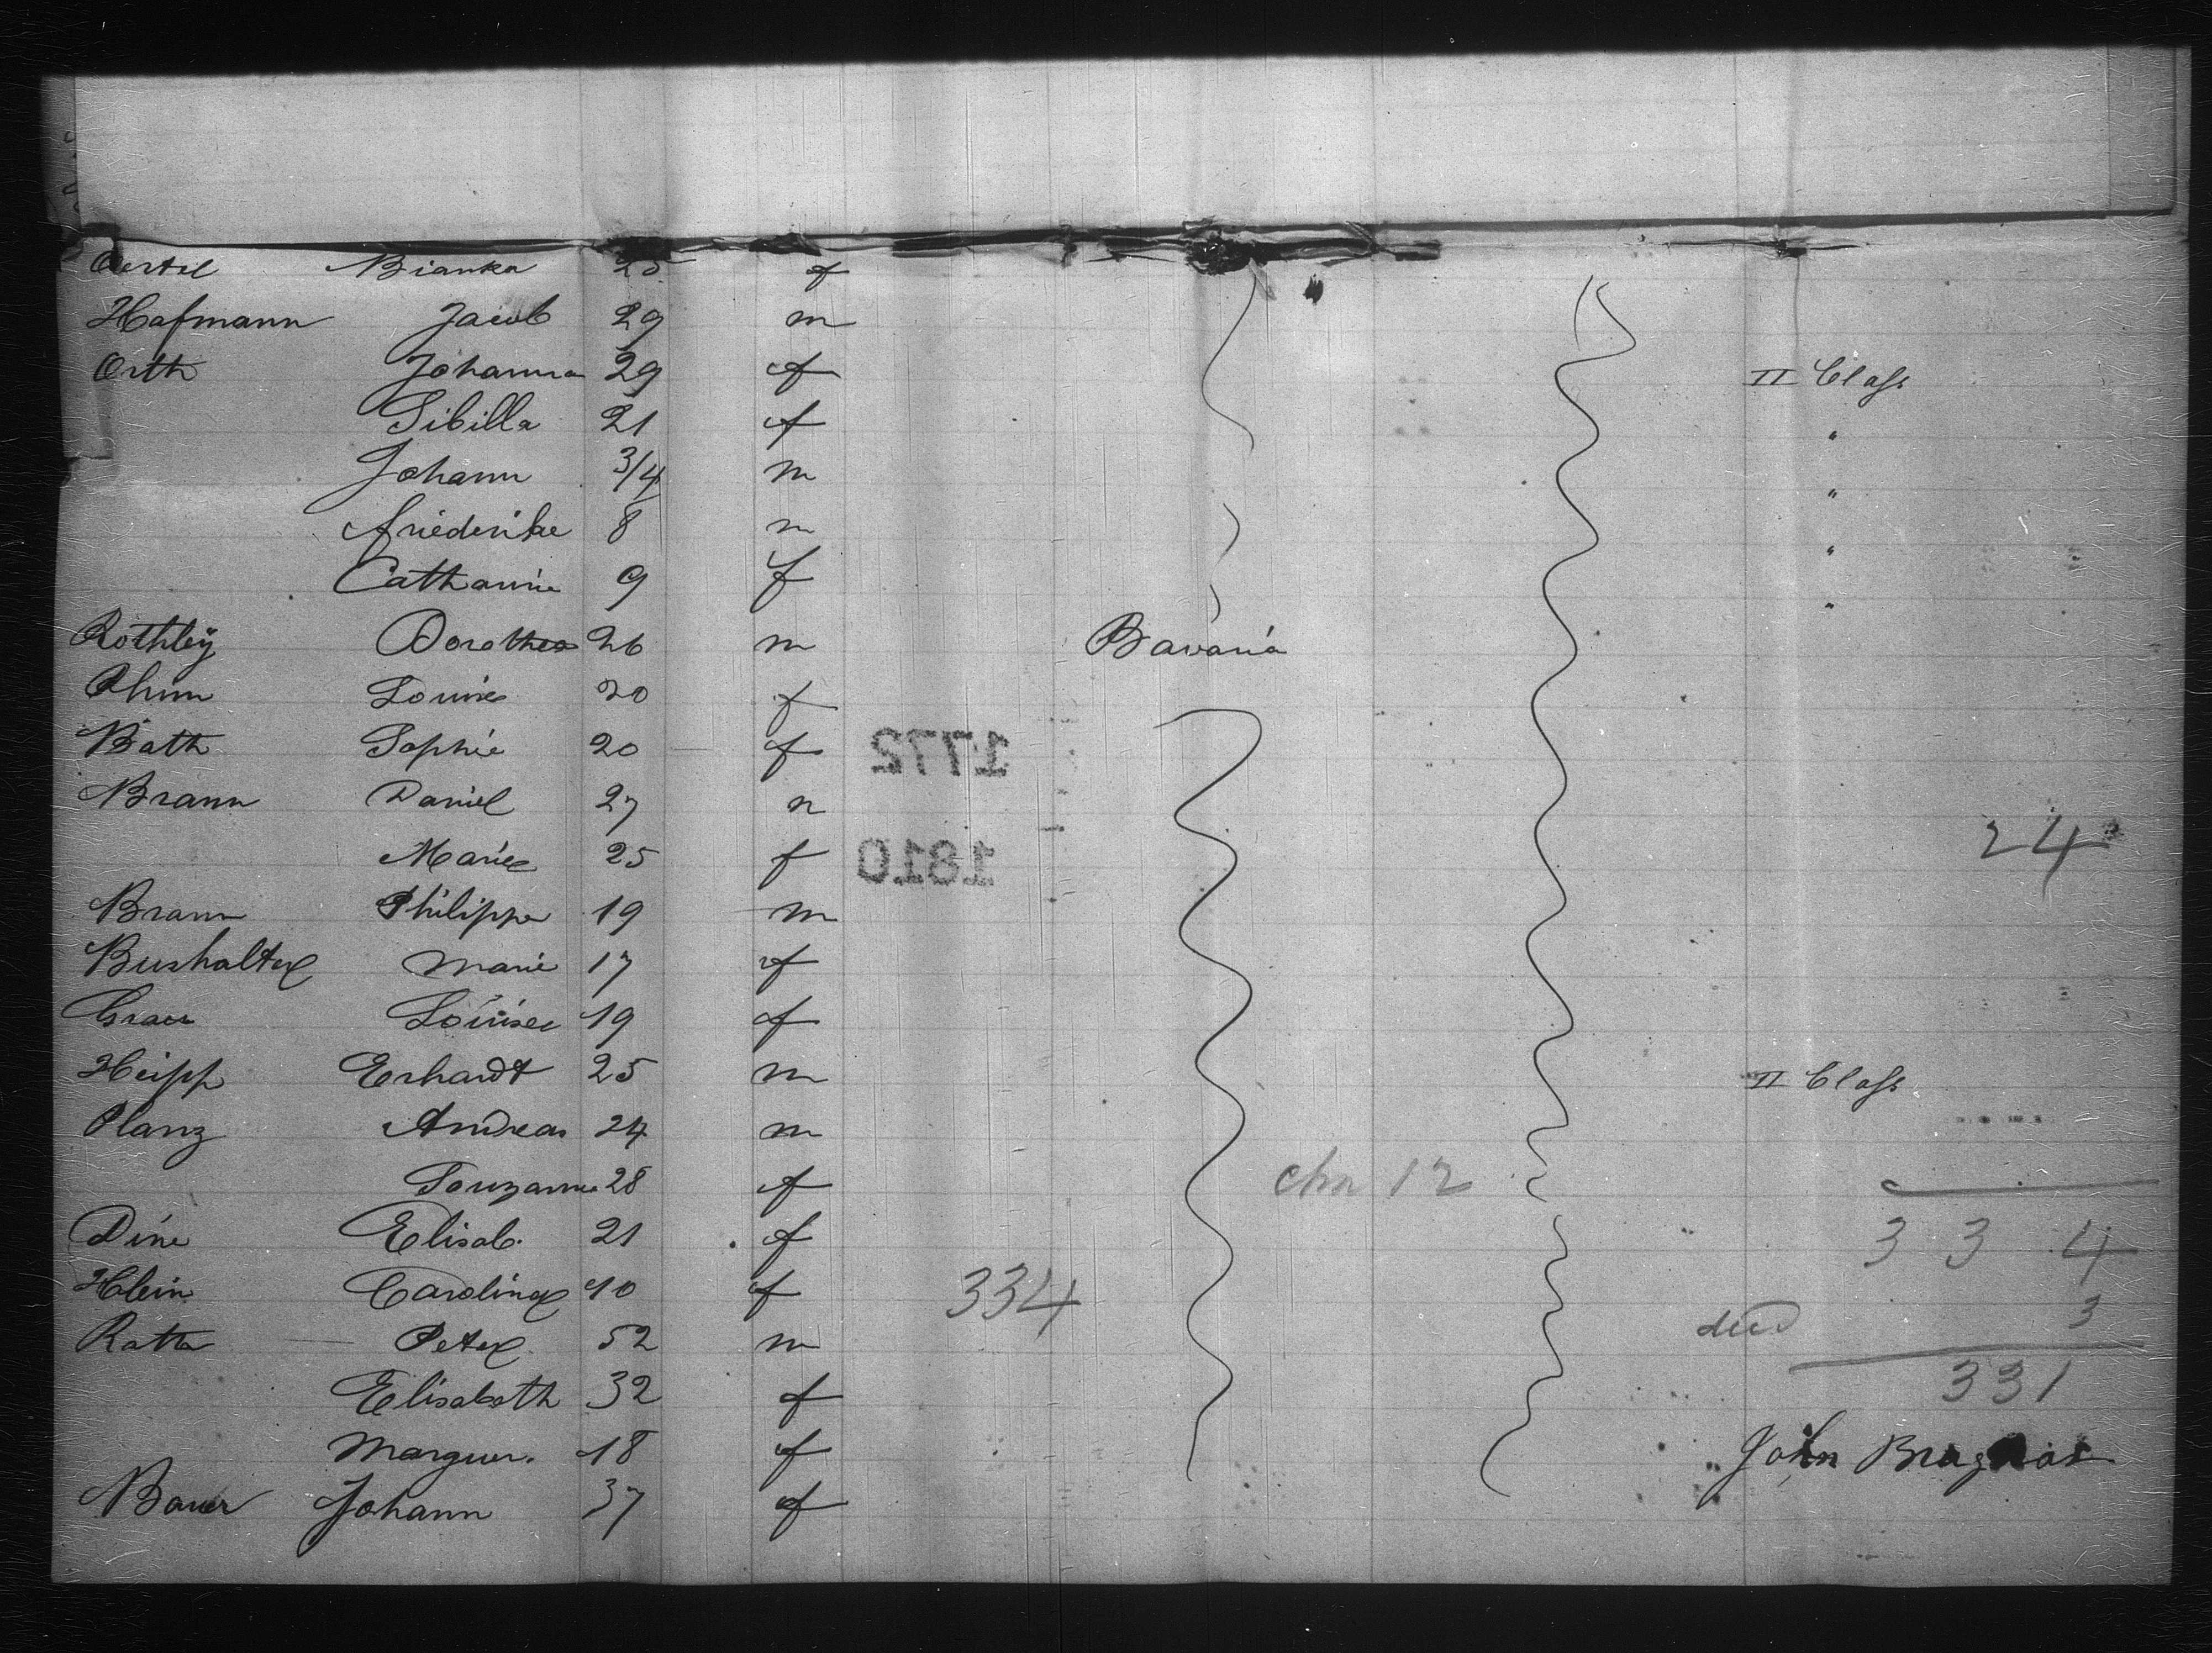 Oertel Bianka 25 f
Hofmann Jacob 29 m
Orth Johanna 29 f II Class
Sibilla 21 f "
Johann 3/4 m "
Friederike 8 m "
Catharine 9 f "
Rothley Dorothea 26 m Bavaria
Thum Louise 20 f
Bath Sophie 20 f 1772
Brann Daniel 27 m
Marie 25 f 1810 24
Brann Philippe 19 m
Bushalter Marie 17 f
Grau Louise 19 f
Heipp Erhardt 25 m II Class
Planz Andreas 24 m
Souzanne 28 f chn 12
Dine Elisab. 21 f 334
Klein Caroline 10 f 334
Rath Peter 52 m ded 3
Elisabeth 32 f 331
Marguer. 18 f John
Bauer Johann 37 f